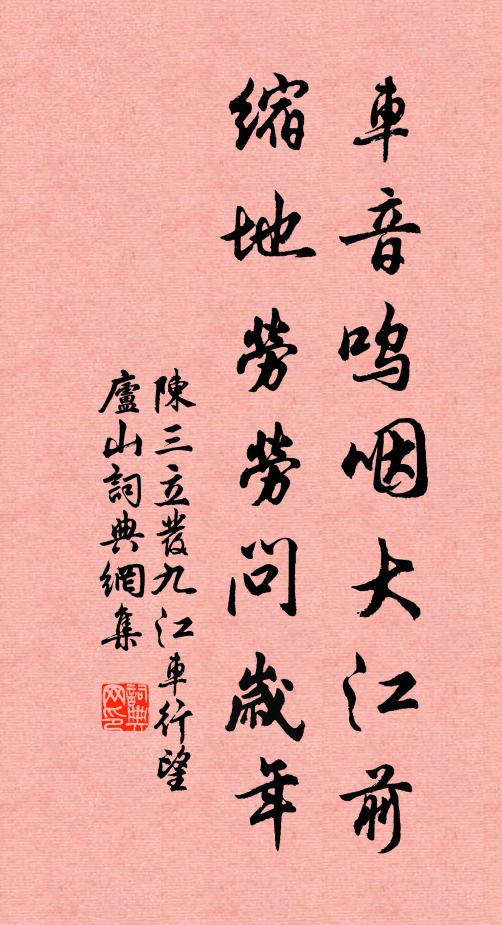 車音嗚咽大江前
縮地勞勞問歲年
陳三立發九江車行望
廬山詞典網集
詞典
网印